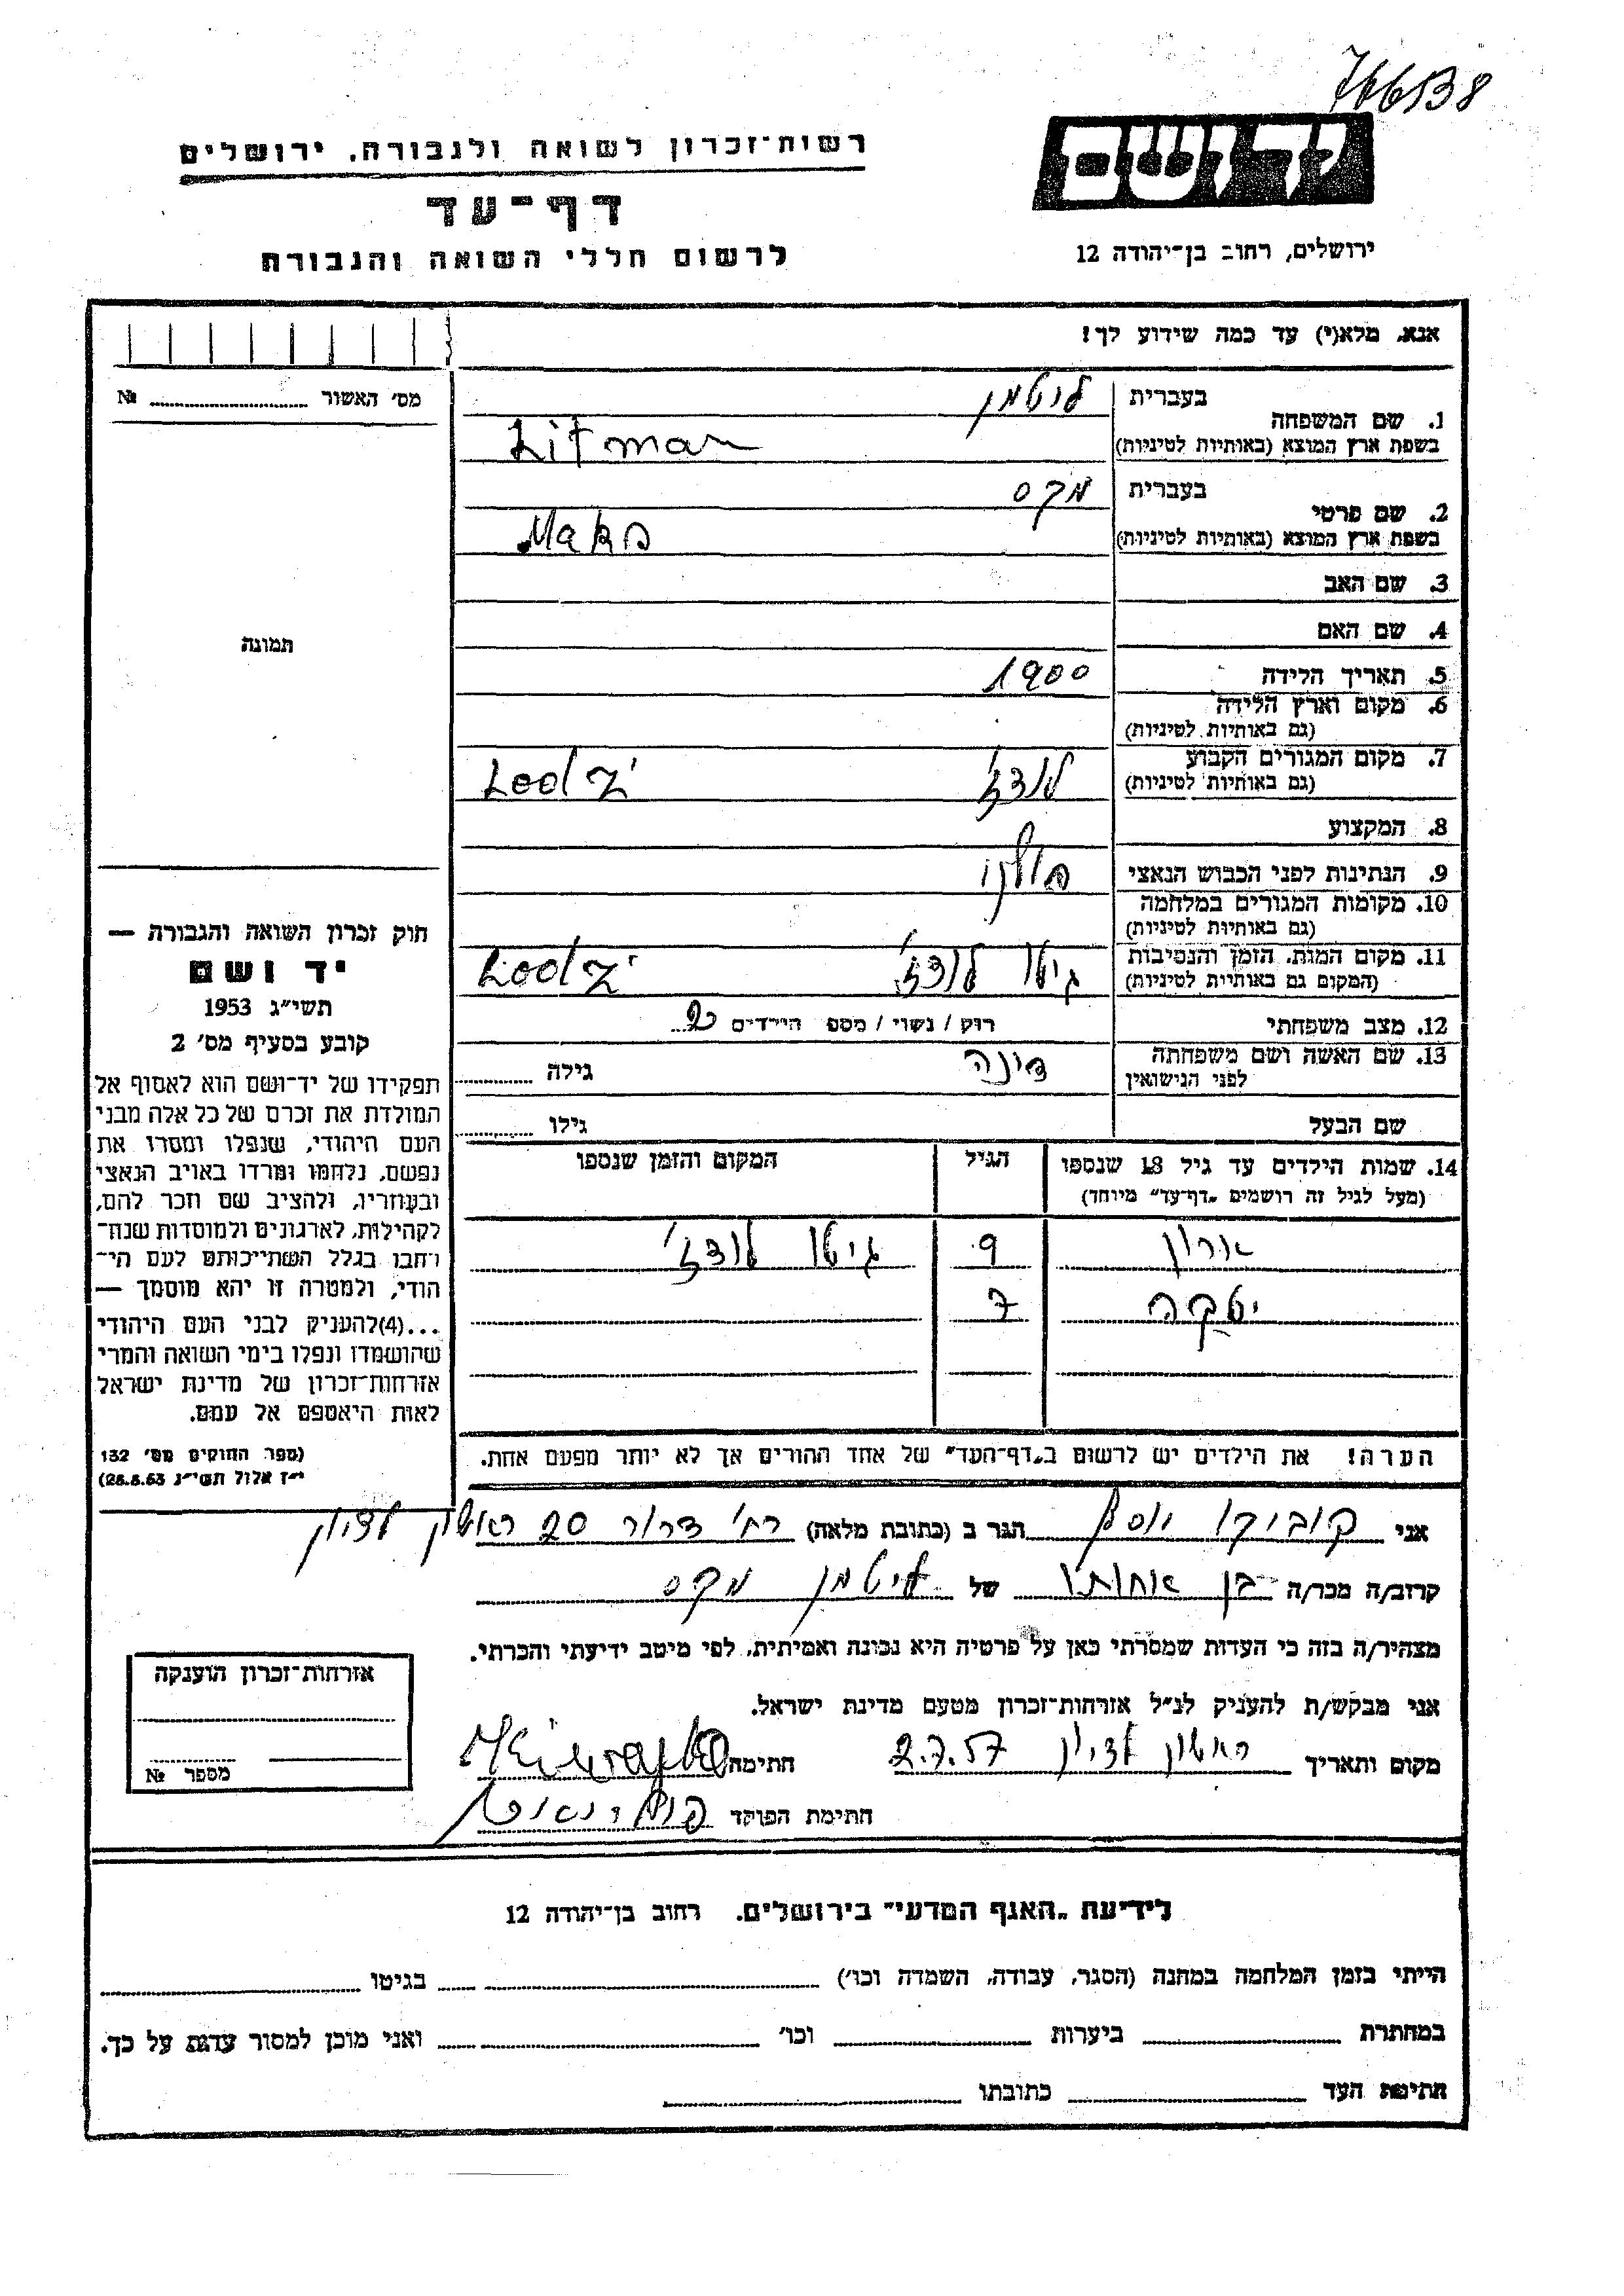 766138
יד ושם
רשות־זכרון לשואה ולגבורה, ירושלים
דף־עד
לרשום חללי השואה והגבורה
ירושלים, רחוב בן־יהודה 12
אנא, מלא(י) עד כמה שידוע לך!
מס' האשור № 
1. שם המשפחה בעברית ליטמן
בשפת ארץ המוצא (באותיות לטיניות) Litman
2. שם פרטי בעברית מקס
בשפת ארץ המוצא (באותיות לטיניות) Maks
3. שם האב
4. שם האם
תמונה
5. תאריך הלידה 1900
6. מקום וארץ הלידה
(גם באותיות לטיניות)
7. מקום המגורים הקבוע לודז' Lodz
(גם באותיות לטיניות)
8. המקצוע
9. הנתינות לפני הכבוש הנאצי פולני
10. מקומות המגורים במלחמה
(גם באותיות לטיניות)
11. מקום המות, הזמן והנסיבות גיטו לודז' Lodz
(המקום גם באותיות לטיניות)
12. מצב משפחתי רוק / נשוי / מספ הילדים 2
13. שם האשה ושם משפחתה דינה גילה
לפני הנישואין
שם הבעל גילו
14. שמות הילדים עד גיל 18 שנספו הגיל המקום והזמן שנספו
(מעל לגיל זה רושמים „דף־עד" מיוחד)
אהרון 9 גיטו לודז'
7
הערה! את הילדים יש לרשום ב„דף־העד" של אחד ההורים אך לא יותר מפעם אחת.
חוק זכרון השואה והגבורה —
יד ושם
תשי"ג 1953
קובע בסעיף מס' 2
תפקידו של יד־ושם הוא לאסוף אל
המולדת את זכרם של כל אלה מבני
העם היהודי, שנפלו ומסרו את
נפשם, נלחמו ומרדו באויב הנאצי
ובעוזריו, ולהציב שם וזכר להם,
לקהילות, לארגונים ולמוסדות שנח־
רבו בגלל השתייכותם לעם הי־
הודי, ולמטרה זו יהא מוסמך —
...(4) להעניק לבני העם היהודי
שהושמדו ונפלו בימי השואה והמרי
אזרחות־זכרון של מדינת ישראל
לאות היאספם אל עמם.
(ספר החוקים מס' 132
י"ז אלול תשי"ג 28.8.53)
אני יוסף הגר ב (כתובת מלאה) רח' דרור 20 ראשון לציון
קרוב/ה מכר/ה בן אחותו של ליטמן מקס
מצהיר/ה בזה כי העדות שמסרתי כאן על פרטיה היא נכונה ואמיתית, לפי מיטב ידיעתי והכרתי.
אני מבקש/ת להעניק לנ"ל אזרחות־זכרון מטעם מדינת ישראל.
מקום ותאריך ראשון לציון 2.7.57 חתימה
חתימת הפוקד
אזרחות־זכרון הוענקה
מספר №
לידיעת „האגף המדעי" בירושלים, רחוב בן־יהודה 12
הייתי בזמן המלחמה במחנה (הסגר, עבודה, השמדה וכו') בגיטו
במחתרת ביערות וכו' ואני מוכן למסור עדות על כך.
חתימת העד כתובתו